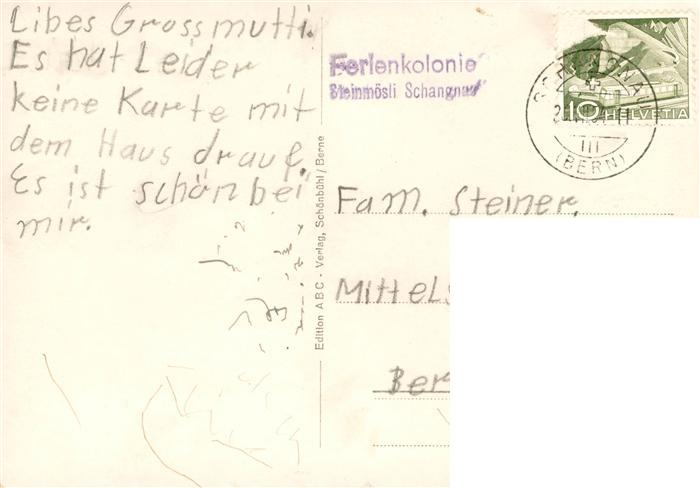 Libes Grossmutti.
Es hat Leider
keine Karte mit
dem Haus drauf.
Es ist schön bei
mir.
Edition ABC - Verlag, Schönbühl/Berne
Ferienkolonie
Steinmösli Schangnau
10 HELVETIA
III
(BERN)
Fam. Steiner.
Mittels
Ber